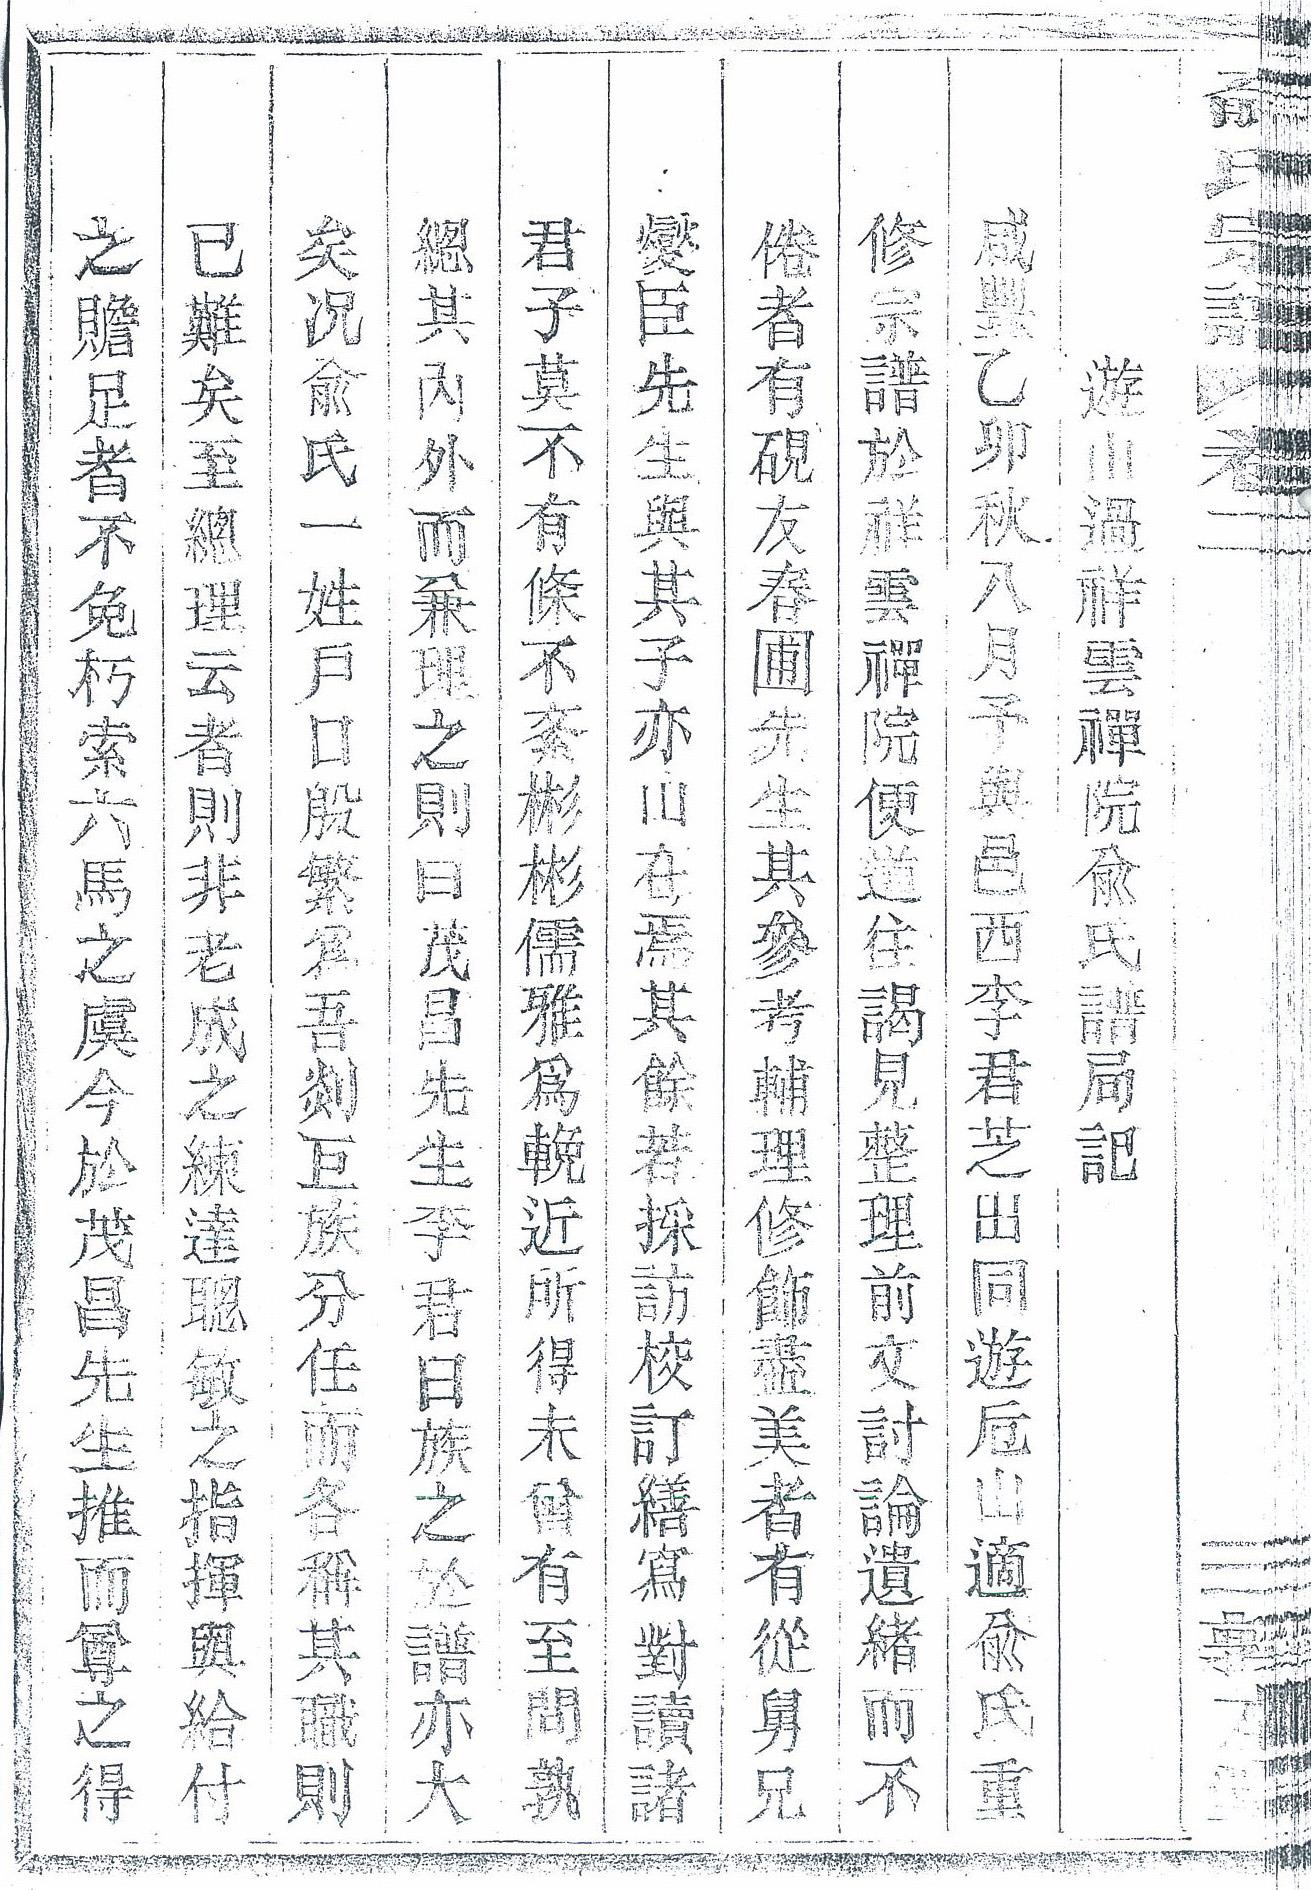 俞氏宗譜 卷二
遊山過祥雲禪院俞氏譜局記
咸豐乙卯秋八月予與邑西李君芝出同遊卮山適俞氏重
修宗譜於祥雲禪院便道往謁見整理前文討論遺緒而不
倦者有硯友春圃先生其參考輔理修飾盡美者有從舅兄
燮臣先生與其子亦山在焉其餘若採訪校訂繕寫對讀諸
君子莫不有條不紊彬彬儒雅爲輓近所得未曾有至問孰
總其內外而兼理之則曰茂昌先生李君曰族之於譜亦大
矣况俞氏一姓戶口殷繁爲吾剡巨族分任而各稱其職則
已難矣至總理云者則非老成之練達聰敏之指揮與給付
之贍足者不免朽索六馬之虞今於茂昌先生推而尊之得